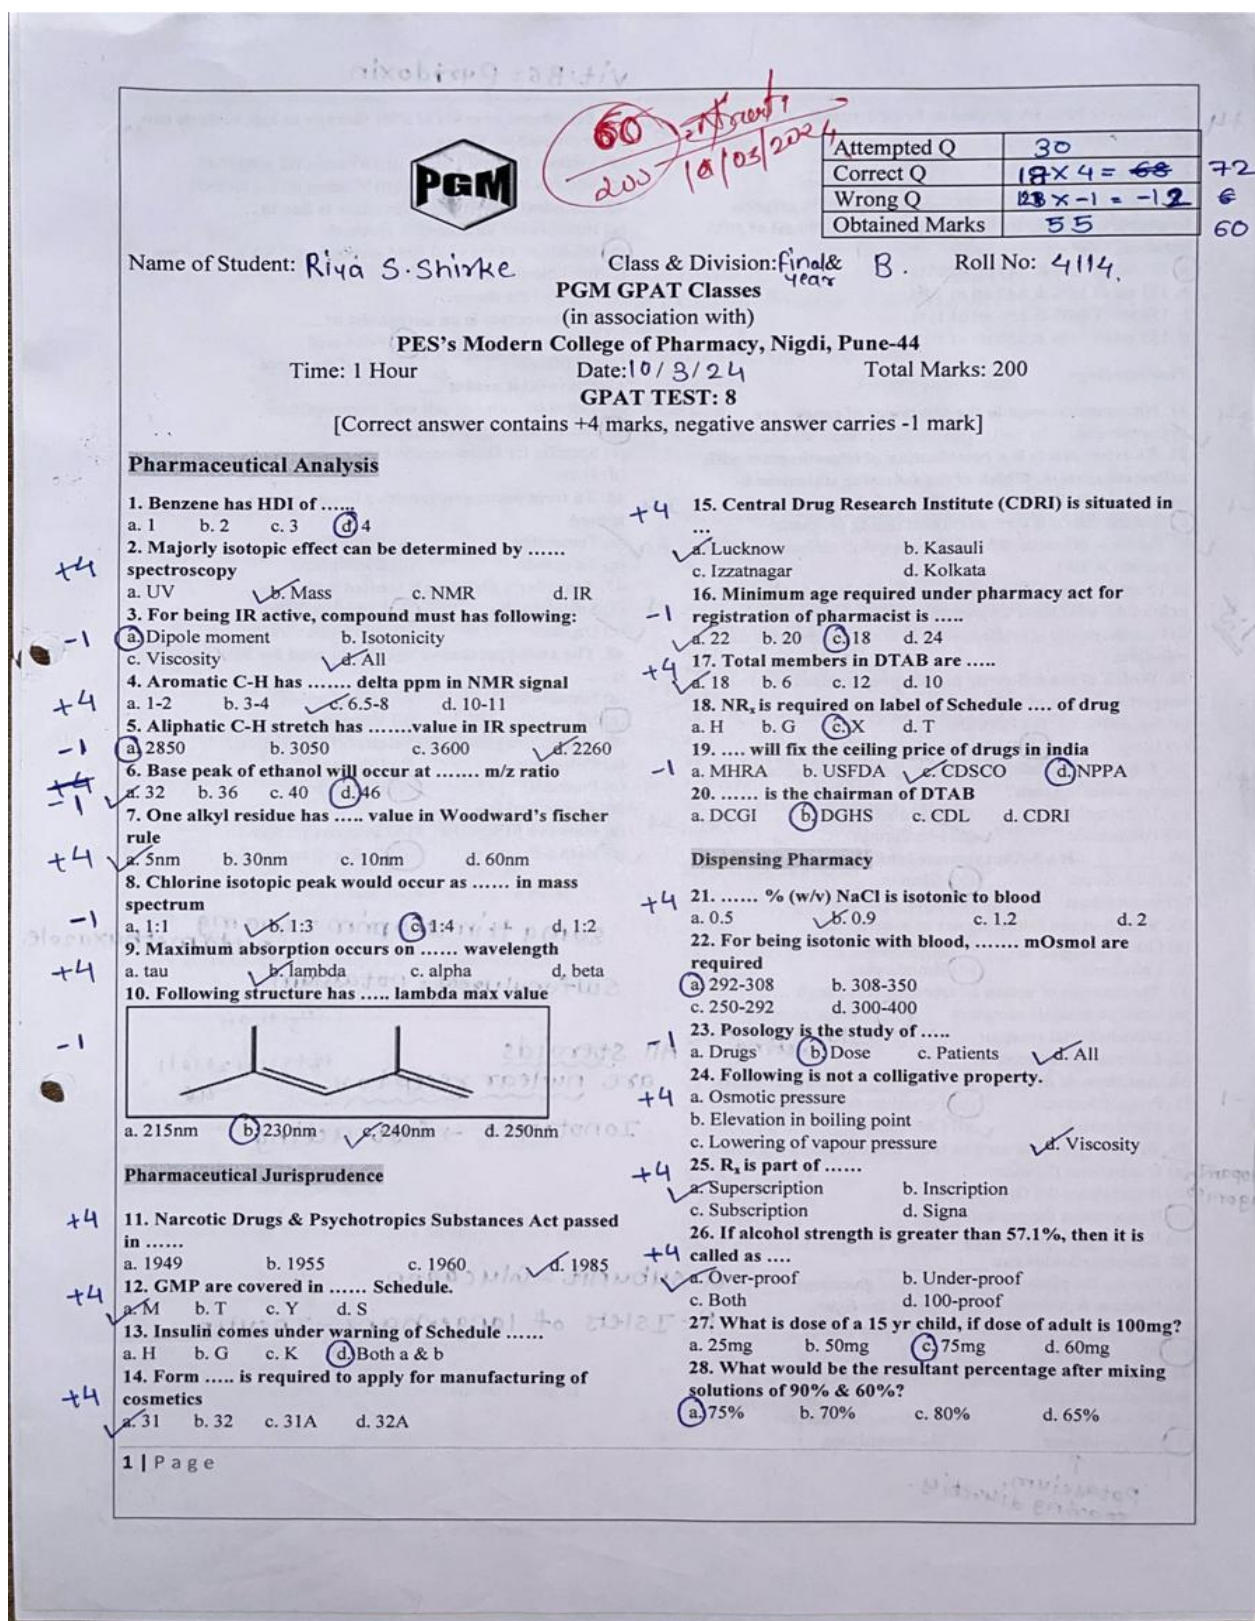 60
200
10/03/2024
PGM
Attempted Q 30
Correct Q 18 x 4 = 68 72
Wrong Q 12 x -1 = -12
Obtained Marks 55 60
Name of Student: Riya S. Shirke Class & Division: final year B. Roll No: 4114.
PGM GPAT Classes
(in association with)
PES's Modern College of Pharmacy, Nigdi, Pune-44
Time: 1 Hour Date: 10/3/24 Total Marks: 200
GPAT TEST: 8
[Correct answer contains +4 marks, negative answer carries -1 mark]
Pharmaceutical Analysis
1. Benzene has HDI of ......
a. 1 b. 2 c. 3 d. 4
2. Majorly isotopic effect can be determined by ......
+4 spectroscopy
a. UV b. Mass c. NMR d. IR
3. For being IR active, compound must has following:
-1 a. Dipole moment b. Isotonicity
c. Viscosity d. All
4. Aromatic C-H has ....... delta ppm in NMR signal
+4 a. 1-2 b. 3-4 c. 6.5-8 d. 10-11
5. Aliphatic C-H stretch has .......value in IR spectrum
-1 a. 2850 b. 3050 c. 3600 d. 2260
6. Base peak of ethanol will occur at ....... m/z ratio
+4 -1 a. 32 b. 36 c. 40 d. 46
7. One alkyl residue has ..... value in Woodward's fischer
rule
+4 a. 5nm b. 30nm c. 10nm d. 60nm
8. Chlorine isotopic peak would occur as ...... in mass
spectrum
-1 a, 1:1 b. 1:3 c. 1:4 d, 1:2
9. Maximum absorption occurs on ...... wavelength
+4 a. tau b. lambda c. alpha d, beta
10. Following structure has ..... lambda max value
-1
a. 215nm b. 230nm c. 240nm d. 250nm
Pharmaceutical Jurisprudence
+4 11. Narcotic Drugs & Psychotropics Substances Act passed
in ......
a. 1949 b. 1955 c. 1960 d. 1985
+4 12. GMP are covered in ...... Schedule.
a. M b. T c. Y d. S
13. Insulin comes under warning of Schedule ......
a. H b. G c. K d. Both a & b
14. Form ..... is required to apply for manufacturing of
+4 cosmetics
a. 31 b. 32 c. 31A d. 32A
+4 15. Central Drug Research Institute (CDRI) is situated in
...
a. Lucknow b. Kasauli
c. Izzatnagar d. Kolkata
16. Minimum age required under pharmacy act for
-1 registration of pharmacist is .....
a. 22 b. 20 c. 18 d. 24
+4 17. Total members in DTAB are .....
a. 18 b. 6 c. 12 d. 10
18. NRx is required on label of Schedule .... of drug
a. H b. G c. X d. T
19. .... will fix the ceiling price of drugs in india
-1 a. MHRA b. USFDA c. CDSCO d. NPPA
20. ...... is the chairman of DTAB
a. DCGI b. DGHS c. CDL d. CDRI
Dispensing Pharmacy
+4 21. ...... % (w/v) NaCl is isotonic to blood
a. 0.5 b. 0.9 c. 1.2 d. 2
22. For being isotonic with blood, ....... mOsmol are
required
a. 292-308 b. 308-350
c. 250-292 d. 300-400
-1 23. Posology is the study of .....
a. Drugs b. Dose c. Patients d. All
24. Following is not a colligative property.
+4 a. Osmotic pressure
b. Elevation in boiling point
c. Lowering of vapour pressure d. Viscosity
+4 25. Rx is part of ......
a. Superscription b. Inscription
c. Subscription d. Signa
26. If alcohol strength is greater than 57.1%, then it is
+4 called as ....
a. Over-proof b. Under-proof
c. Both d. 100-proof
27. What is dose of a 15 yr child, if dose of adult is 100mg?
a. 25mg b. 50mg c. 75mg d. 60mg
28. What would be the resultant percentage after mixing
solutions of 90% & 60%?
a. 75% b. 70% c. 80% d. 65%
1 | Page